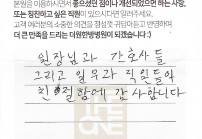 본원을 이용하시면서 좋으셨던 점이나 개선되었으면 하는 사항,
또는 칭찬하고 싶은 직원이 있으시다면 알려주세요.
고객 여러분의 소중한 의견을 경청해 귀담아 듣고 반영하여
더 큰 만족을 드리는 더원한방병원이 되겠습니다 :)
원장님과 간호사들
그리고 원무과 직원들의
친절함에 감사합니다
THE
ONE